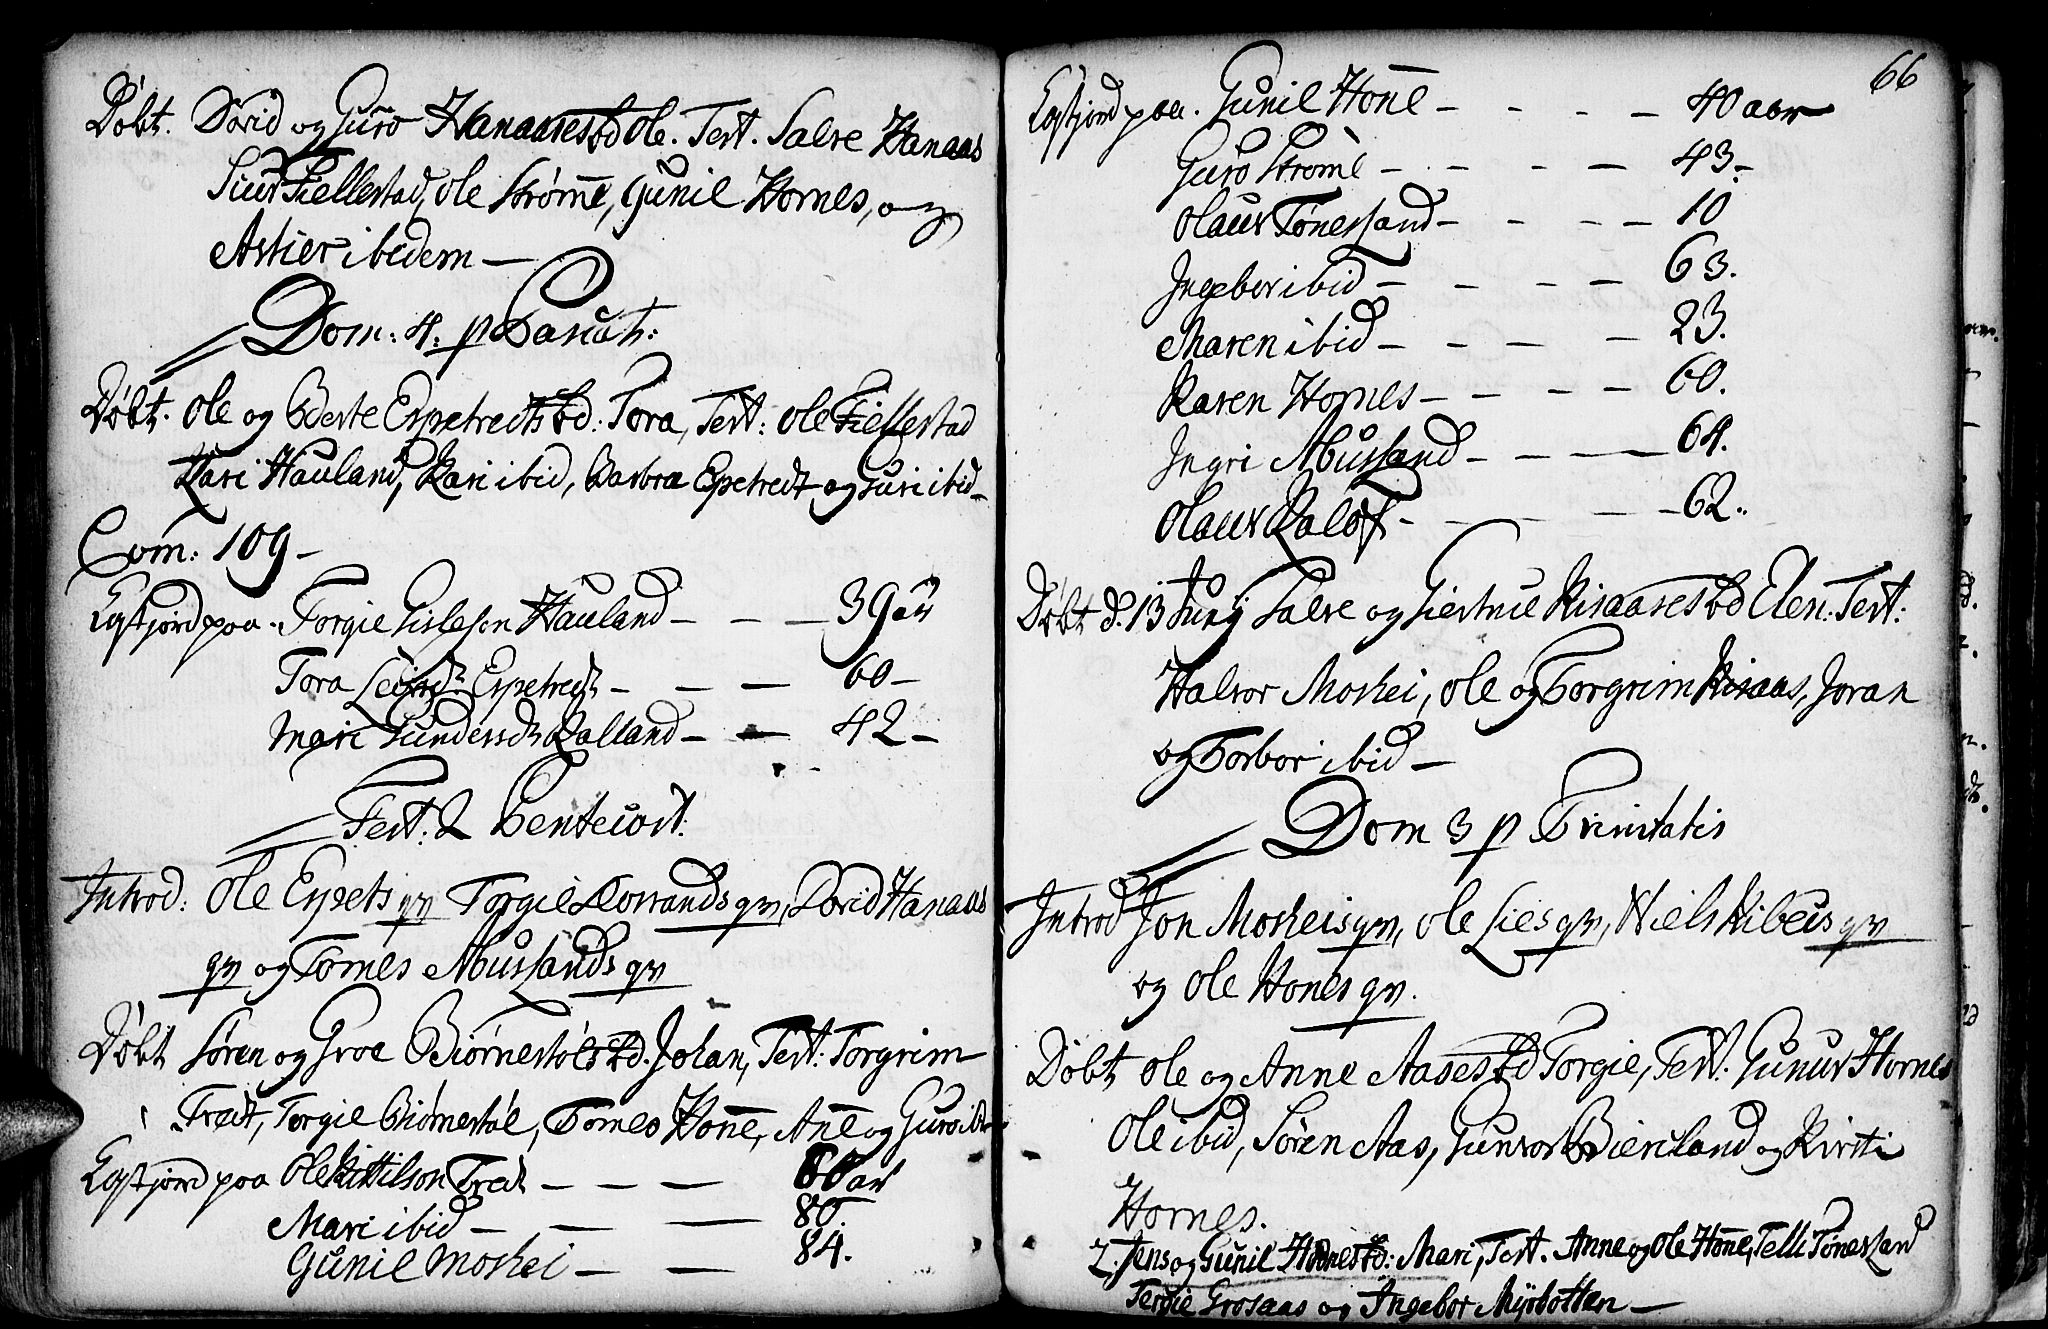 Døbt. David og Guro Hanaases bd Ole. Test. Salve Hanaas
Siur Fiellestad, Ole Strøme, Gunil Hornes, og
Astier ibidem —
Dom: 4. p Pascat:
Døbt. Ole og Berte Espetredts bd: Tora, Test: Ole Fiellestad
Kari Hauland, Kari ibid, Barbra Espetredt og Guri ibid —
Com: 109 —
Egstjord paa. Torgie Gislesøn Hauland — — — 39 aar
Tora Espetredt — — — 60 —
Mari Gundersdt Kalland — — 42 —
Fest: 2 Pentecost:
Introd: Ole Espets qv Torgie Dovrands qv, David Hanaas
qv og Tomes Mussands qv
Døbt Søren og Groe Biørnestøls bd. Johan, Test: Torgrim
Tredt, Torgie Biørnestøl, Tomes Hone, Ane og Guro ibd
Egstjord paa Ole Kittilson Tredt — — — 60 aar
Mari ibid — — — 80.
Gunil Moshei — — 84.
66
Egstjord paa. Gunil Hone — — — — 40 aar
Guro Strøme — — — — 43. —
Olaur Tønessand — — — — 10
Ingebor ibid — — — — 63.
Maren ibid — — — — 23.
Karen Hornes — — — — 60.
Ingri Mussand — — — 64.
Olaur Kaløf — — — — 62.
Døbt d. 13 Junj Salve og Giertrue Risaases bd Elen: Test:
Halvor Moshei, Ole og Torgrim Risaas, Joran
og Torbor ibid —
Dom 3 p Trinitatis
Introd Jon Mosheis qv, Ole Lies qv, Niels Kibeus qv
og Ole Hones qv.
Døbt Ole og Anne Aases bd Torgie, Test: Gunur Hornes
Ole ibid, Søren Aas, Gunvor Bieriland og Kirsti
Hornes.
2. Jens og Gunil Hones bd: Mari, Test. Anne og Ole Hone, Telli Tønessand
Tergie Grosaas og Ingebor Myrbotten —